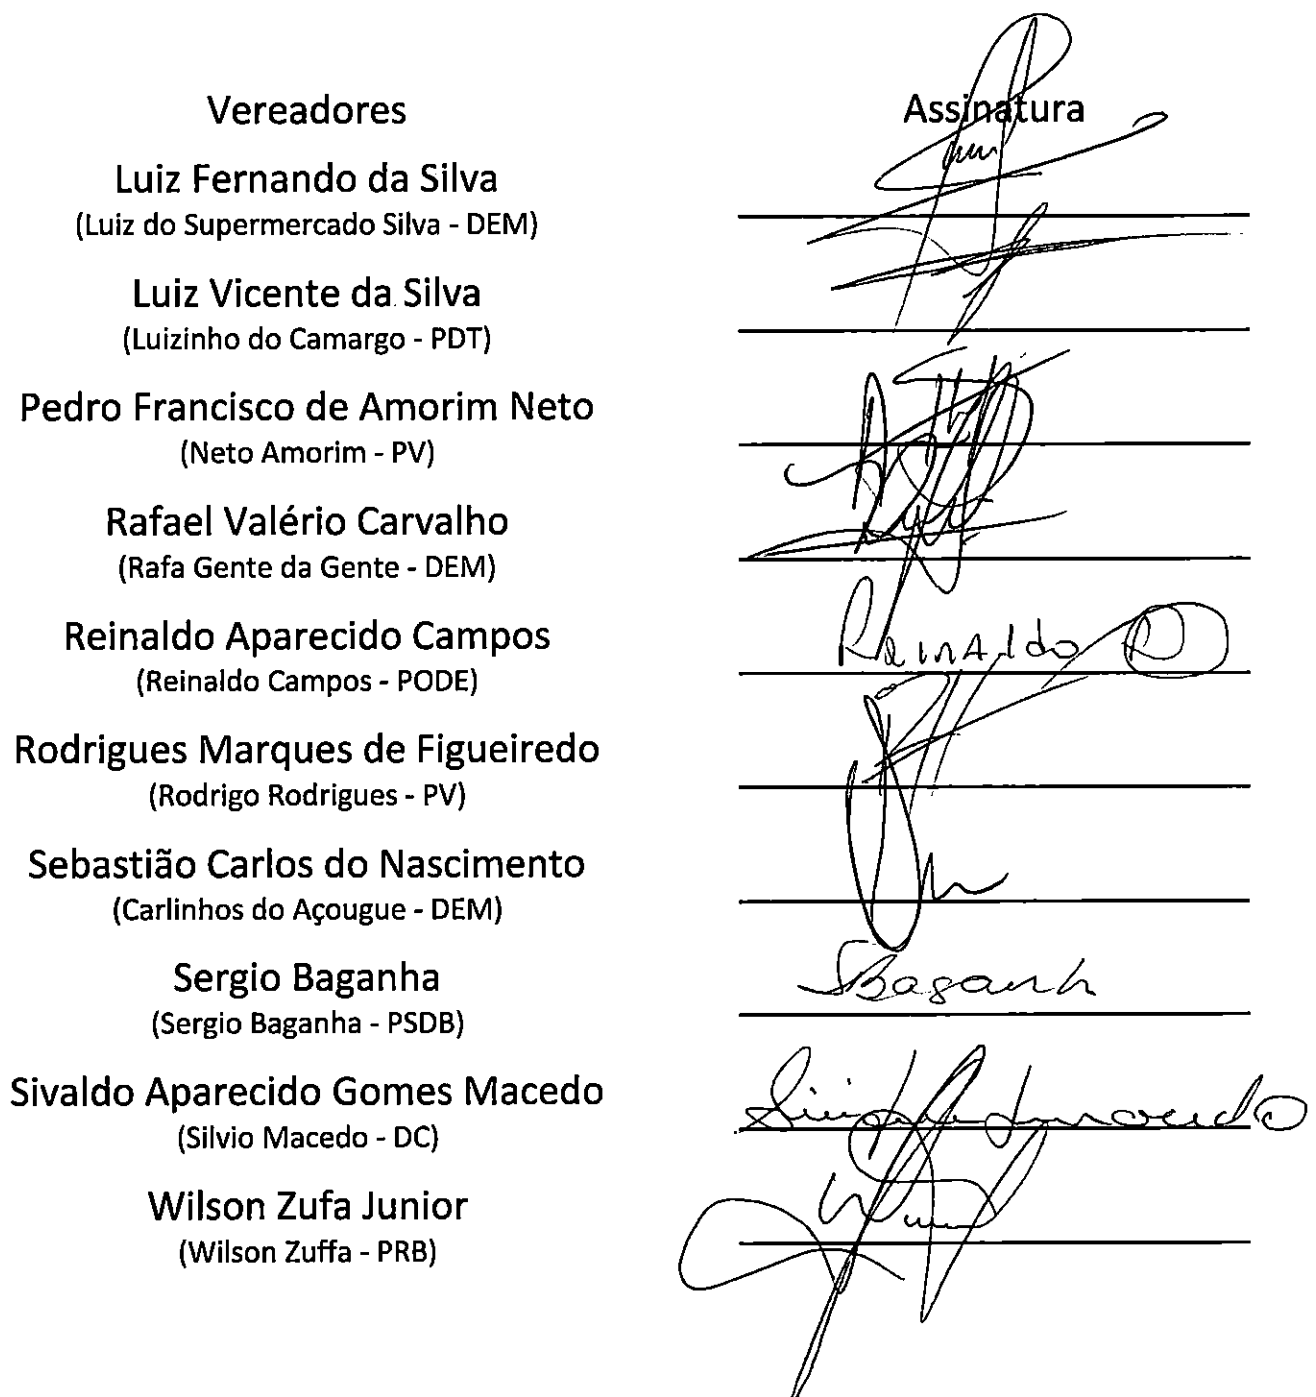 Vereadores Assinatura
Luiz Fernando da Silva
(Luiz do Supermercado Silva - DEM)
Luiz Vicente da Silva
(Luizinho do Camargo - PDT)
Pedro Francisco de Amorim Neto
(Neto Amorim - PV)
Rafael Valério Carvalho
(Rafa Gente da Gente - DEM)
Reinaldo Aparecido Campos
(Reinaldo Campos - PODE)
Reinaldo
Rodrigues Marques de Figueiredo
(Rodrigo Rodrigues - PV)
Sebastião Carlos do Nascimento
(Carlinhos do Açougue - DEM)
Sergio Baganha
(Sergio Baganha - PSDB)
Sivaldo Aparecido Gomes Macedo
(Silvio Macedo - DC)
Wilson Zufa Junior
(Wilson Zuffa - PRB)